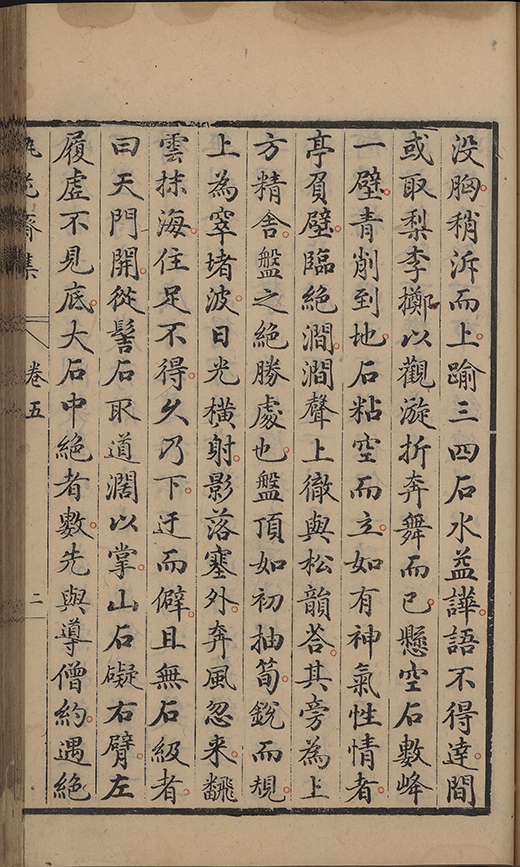 没胸稍泝而上踰三四石水益譁語不得達間
或取梨李擲以觀漩折奔舞而已懸空石數峰
一壁青削到地石粘空而立如有神氣性情者
亭負壁臨絶澗澗聲上徹與松韻荅其旁為上
方精舍盤之絶勝處也盤頂如初抽筍銳而規
上為窣堵波日光橫射影落塞外奔風忽来飜
雲抹海住足不得久乃下迂而僻且無石級者
曰天門開從髻石取道濶以掌山石礙右臂左
履虛不見底大石中絶者數先與導僧約遇絶
花齋集
卷五
二